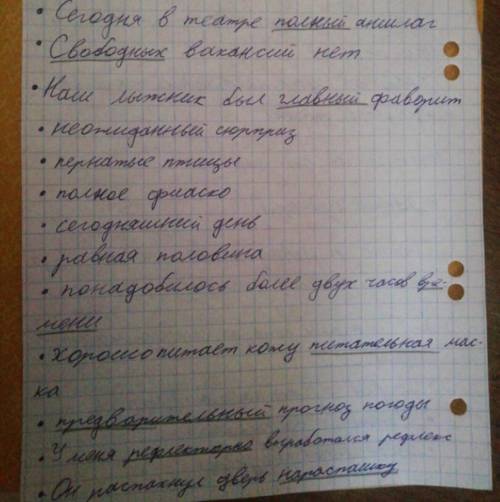 • Сегодня в театре полный аншлаг
• Свободных вакансий нет
• Наш лыжник был главный фаворит
• неожиданный сюрприз
• пернатые птицы
• полное фиаско
• сегодняшний день
• равная половина
• понадобилось более двух часов вре-
мени
• Хорошо питает кожу питательная мас-
ка
• предварительный прогноз погоды
• У меня рефлекторно выработался рефлекс
• Он распахнул дверь нараспашку